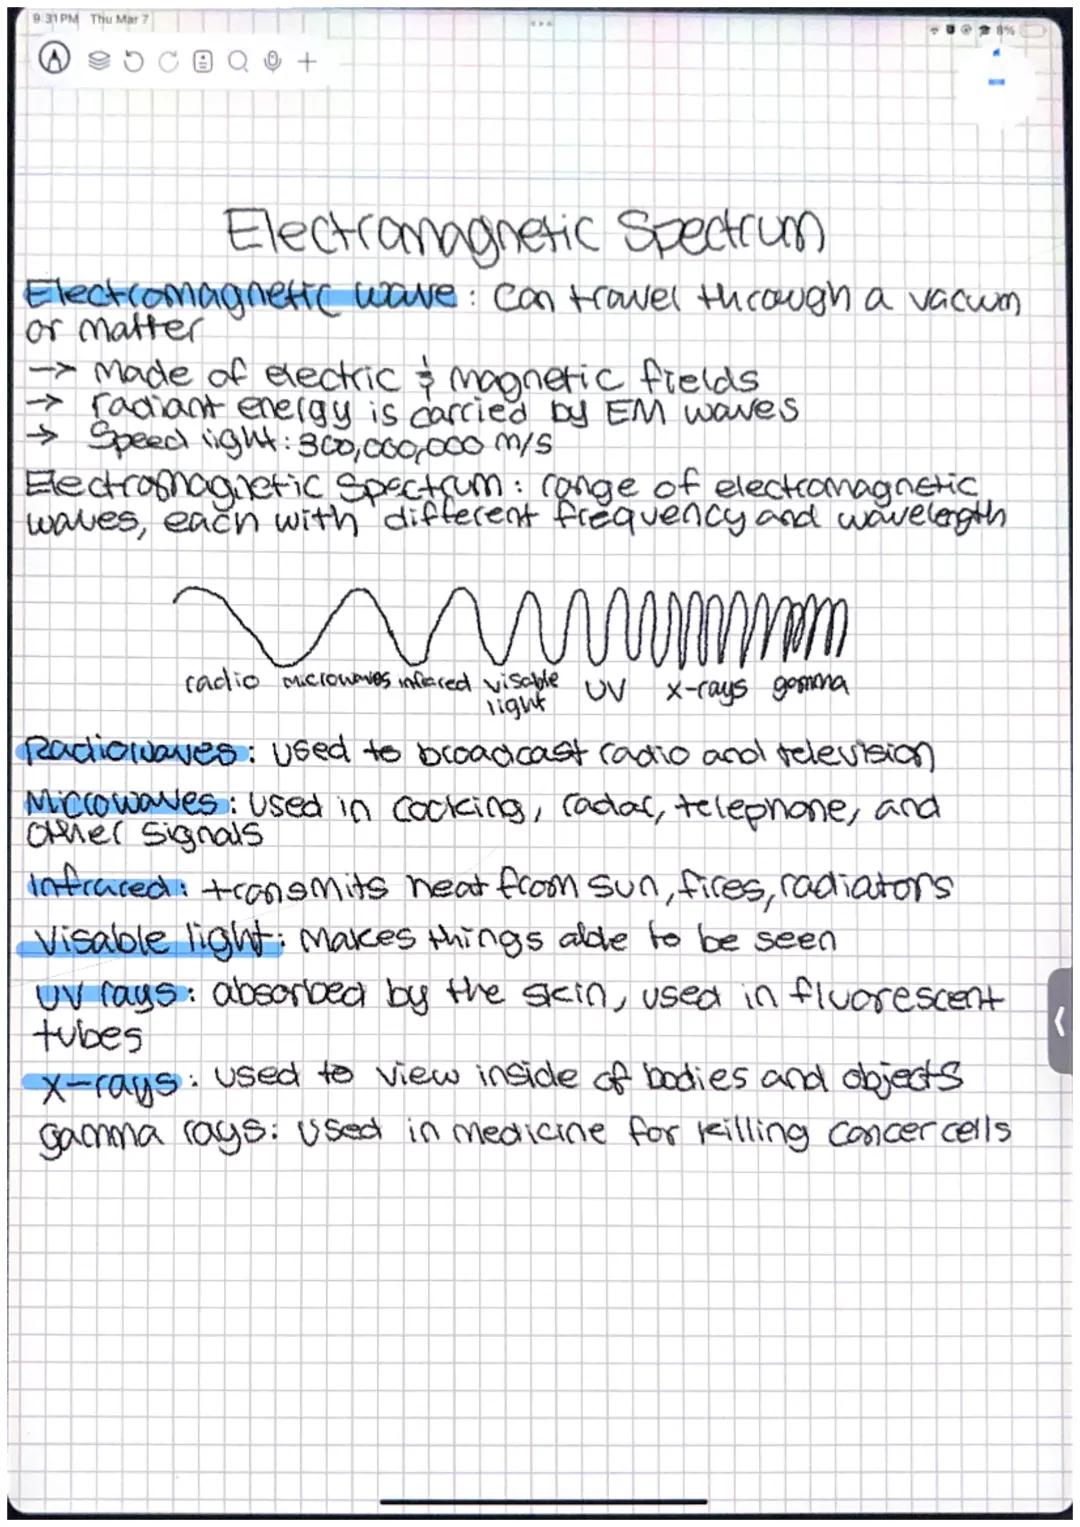 9:31 PM Thu Mar 7
8%
Electromagnetic Spectrum
Electromagnetic wave: Can travel through a vacuum
or matter
→ Made of electric & magnetic fields
→ radiant energy is carried by EM waves
→ Speed light: 300,000,000 m/s
Electromagnetic Spectrum: range of electromagnetic
waves, each with different frequency and wavelength
radio microwaves infared visable UV x-rays gamma
light
Radiowaves: used to broadcast radio and television
Microwaves: Used in cooking, radar, telephone, and
other signals
Infrared: transmits heat from sun, fires, radiators
Visable light: Makes things able to be seen
UV rays: absorbed by the skin, used in fluorescent
tubes
X-rays: used to view inside of bodies and objects
gamma rays: used in medicine for killing cancer cells